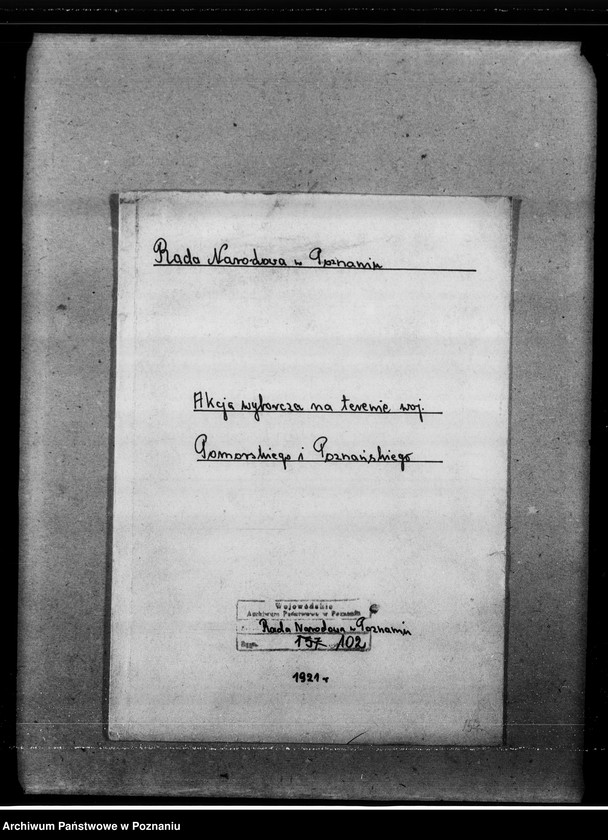 Rada Narodowa w Poznaniu
Akcja wyborcza na terenie woj.
Pomorskiego i Poznańskiego
Wojewódzkie
Archiwum Państwowe w Poznaniu
Rada Narodowa w Poznaniu
Sygn. 197 102
1921 r
Archiwum Państwowe w Poznaniu